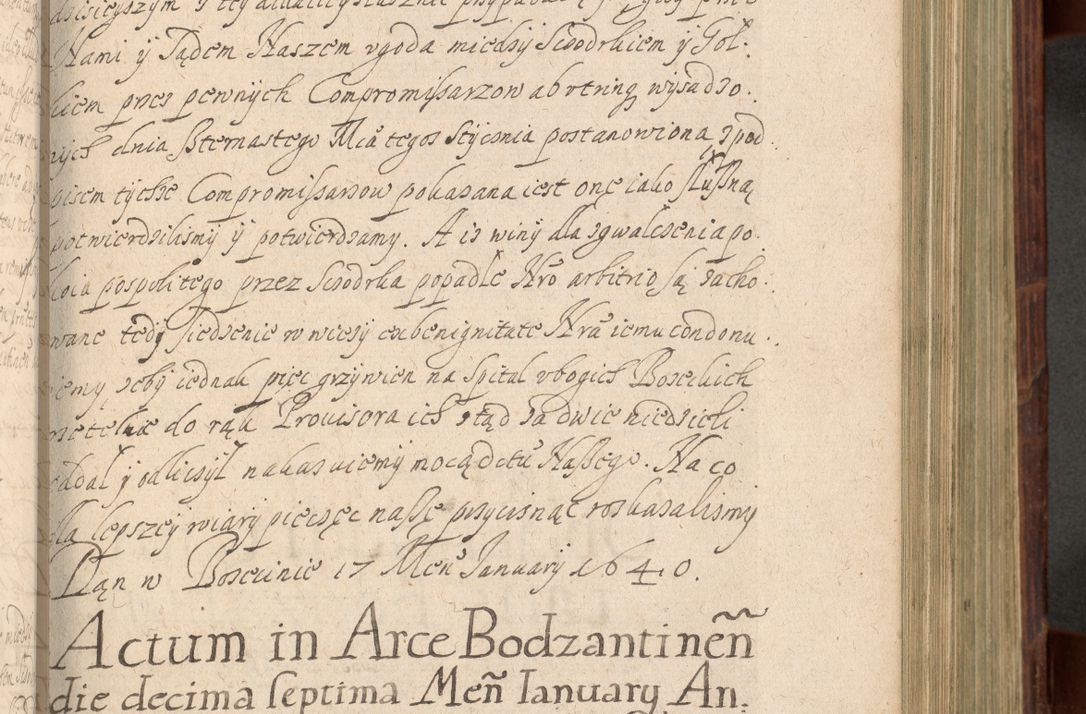 Nami ÿ Sądem Naszem vgoda miedsy Sczodrkiem ÿ Gol.
kiem przes pewnÿch Compromißarzow ab vtrinq wysadzo.
nÿch dnia ßternastego Mca tegos Stÿcznia postanowiona, z pod
pisem tÿchze Compromißarzow pokazana iest onę iako slußną
potwierdzilismÿ ÿ potwierdzamy. A iz winÿ dla zgwalczenia po
koia pospolitego przez Sczodrka popadle Nro arbitrio są zacho.
wane tedÿ siedzenie w wiezÿ ex benignitate Nra iemu condonu.
iemÿ zebÿ iednak pięc grzÿwien na Spital vbogich Bozeckich
do rąk Prouisora ich ztąd za dwie niedzieli
oddal ÿ odliczÿl nakazuiemÿ mocą dctu Naßego. Na co
dla lepszeÿ wiarÿ pieczęc naße przÿcisnąc roskazalismÿ
Dąn w Bozecinie 17 Men̄ Januarÿ 1640.
Actum in Arce Bodzantinen̄
die decima septima Men̄ Ianuary An.